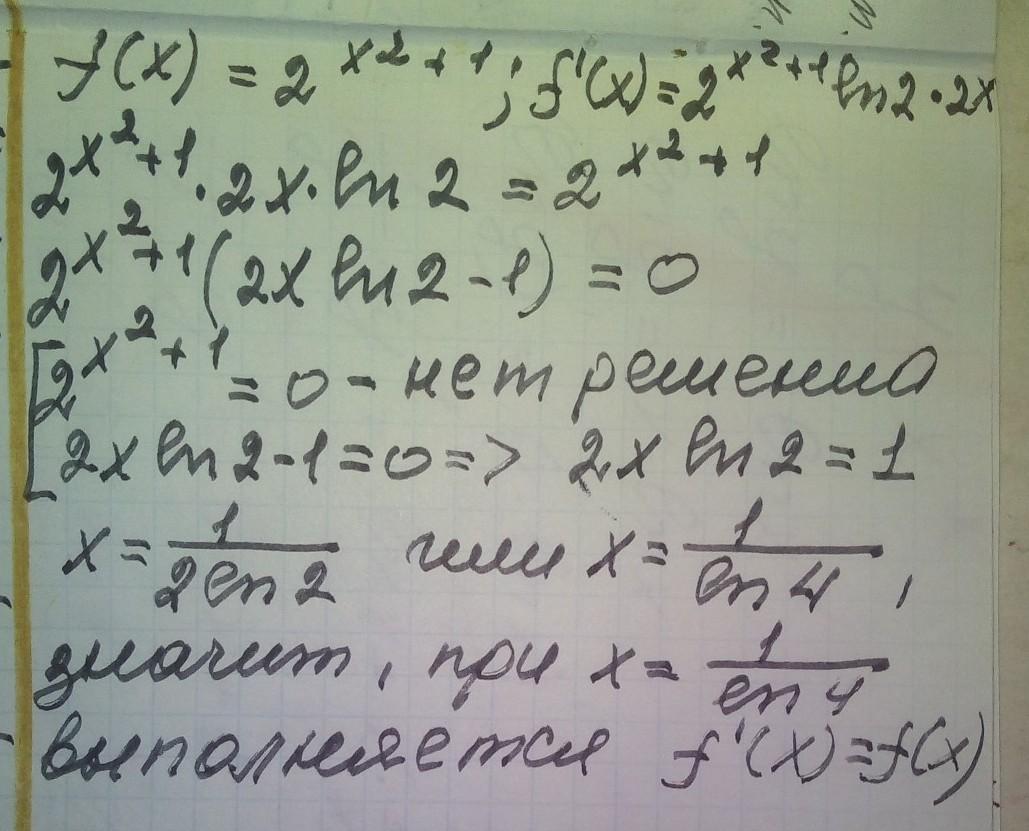 f(x) = 2^{x^2+1}; f'(x) = 2^{x^2+1} ln2·2x
2^{x^2+1}·2x·ln 2 = 2^{x^2+1}
2^{x^2+1}(2x ln2-1) = 0
[2^{x^2+1} = 0 - нет решения
2x ln2-1=0 => 2x ln2=1
x = 1/(2ln2) или x = 1/(ln4),
значит, при x = 1/(ln4)
выполняется f'(x)=f(x)